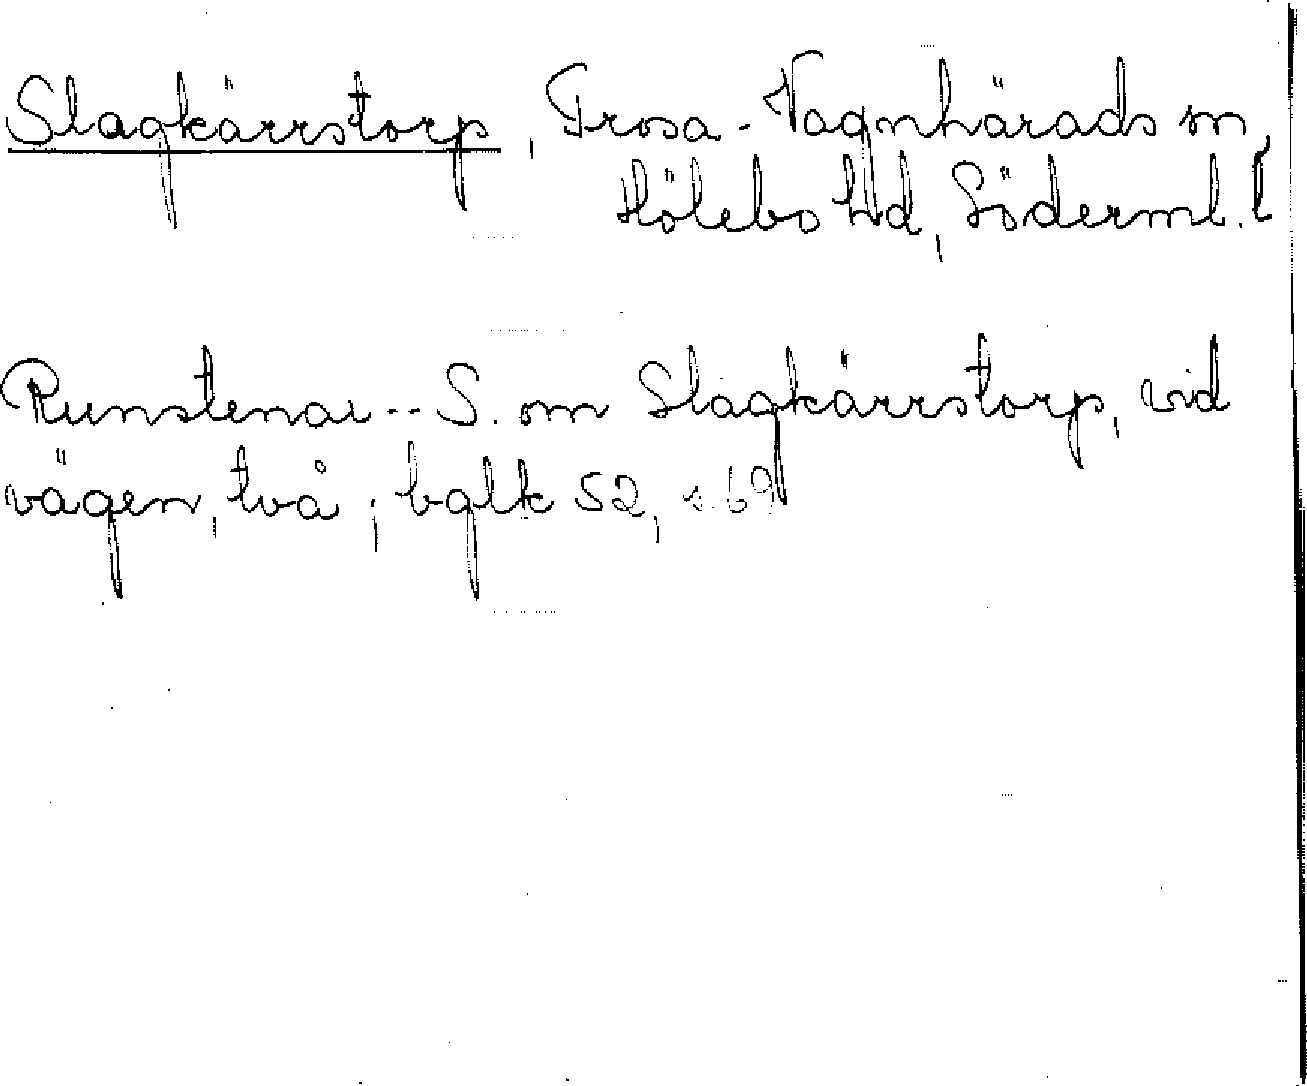 Slagkärrstorp, Trosa-Vagnhärads sn,
Hölebo hd, Söderml. l
Runstenar -- S. om Slagkärrstorp, vid
vägen, två; bglk 52, s. 69